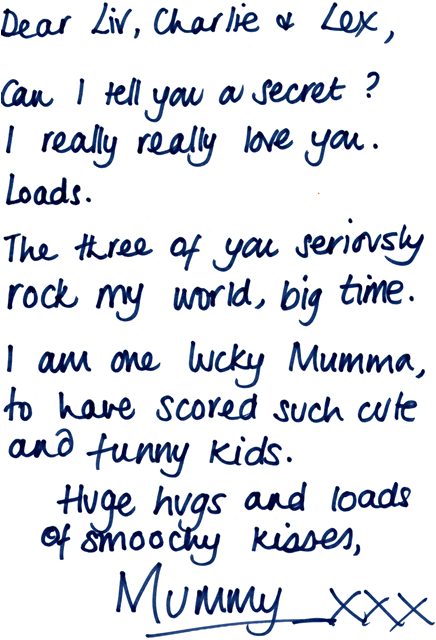 Dear Liv, Charlie & Lex,
Can I tell you a secret?
I really really love you.
Loads.
The three of you seriously
rock my world, big time.
I am one lucky Mumma,
to have scored such cute
and funny kids.
Huge hugs and loads
of smoochy kisses,
Mummy xxx